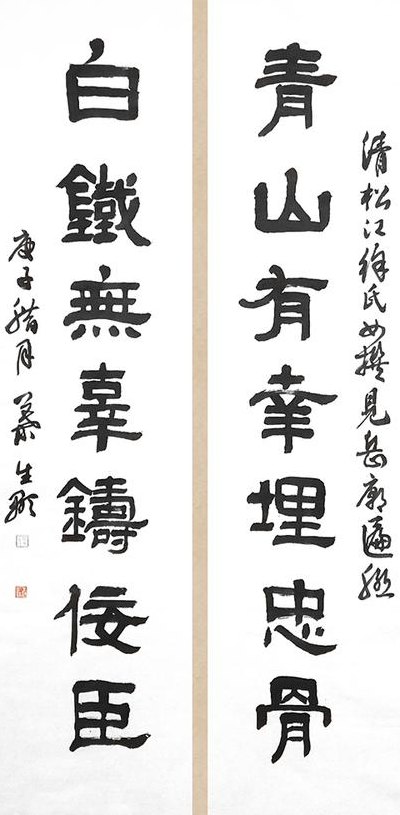 清松江徐氏女撰見岳廟聯
青山有幸埋忠骨
白鐵無辜鑄佞臣
庚子腊月